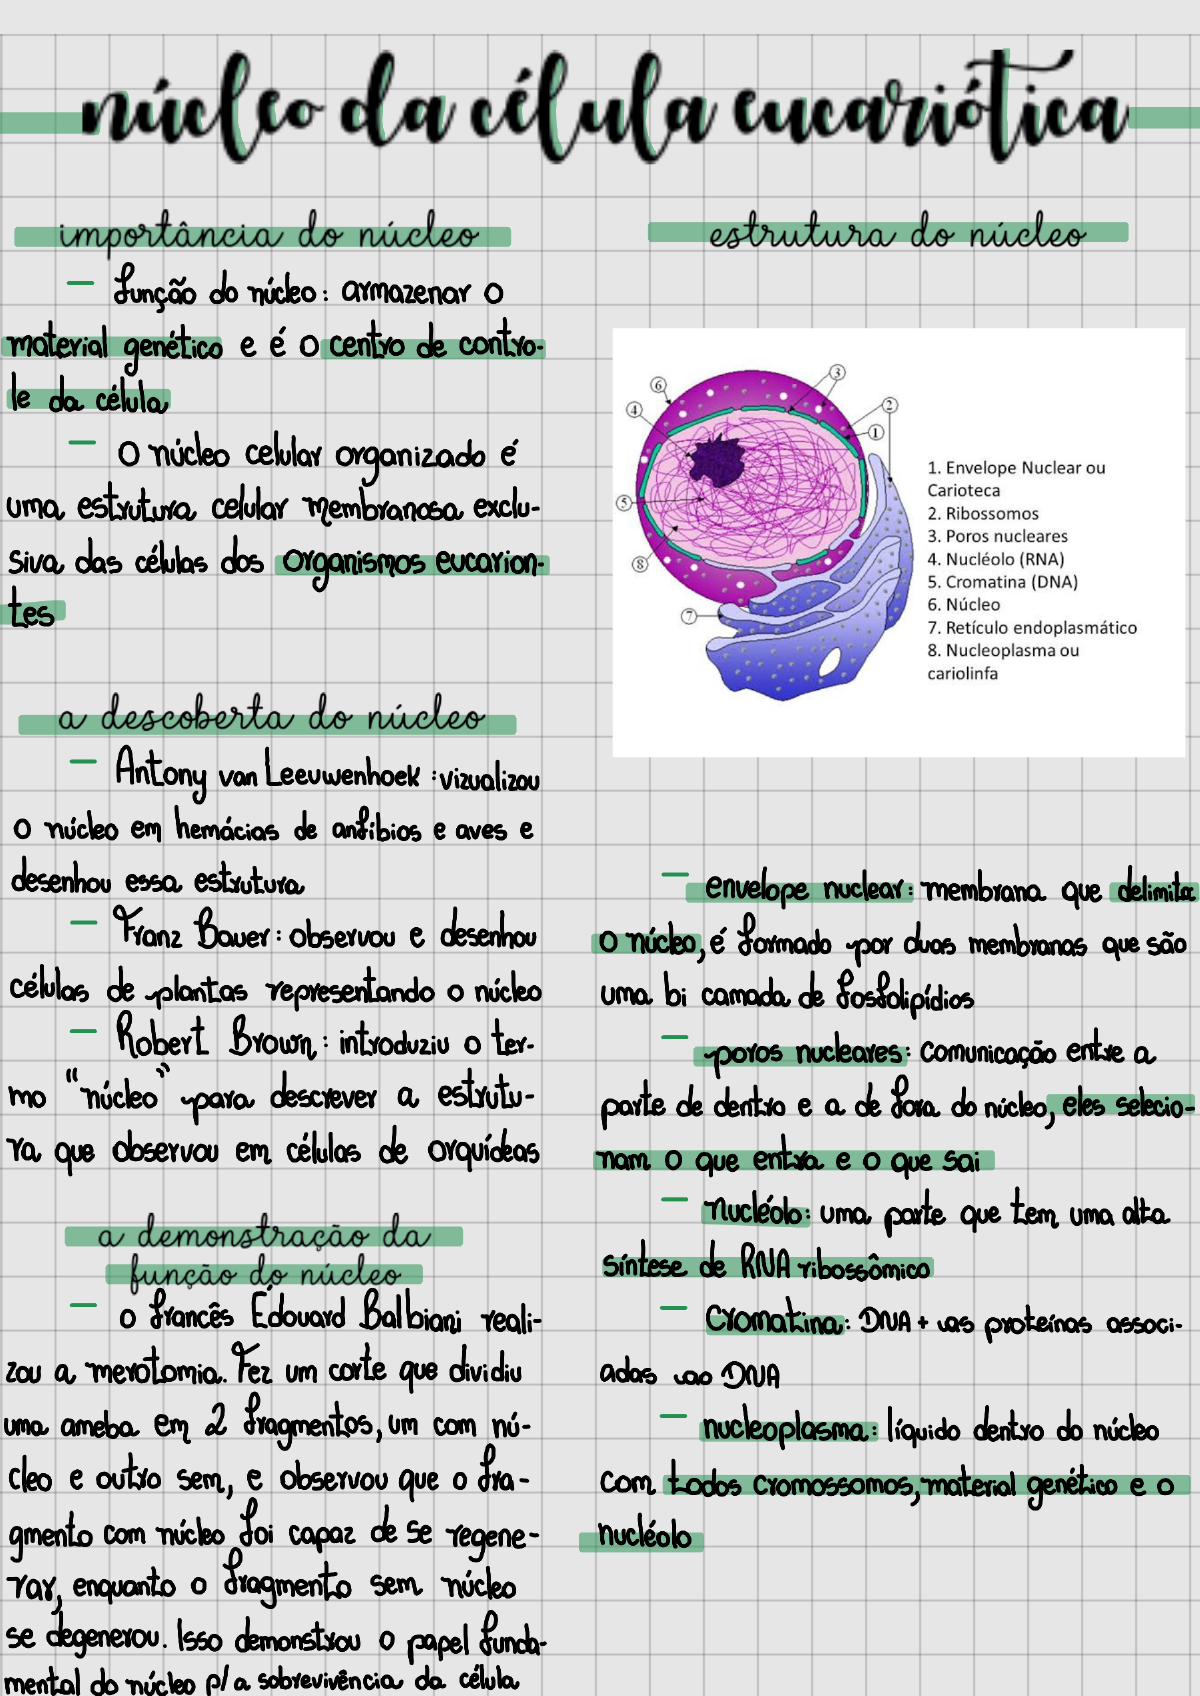 núcleo da célula eucariótica
importância do núcleo
— função do núcleo: armazenar o
material genético e é o centro de contro-
le da célula
— O núcleo celular organizado é
uma estrutura celular membranosa exclu-
siva das células dos organismos eucarion-
tes
a descoberta do núcleo
— Antony van Leeuwenhoek: vizualizou
o núcleo em hemácias de anfíbios e aves e
desenhou essa estrutura
— Franz Bauer: observou e desenhou
células de plantas representando o núcleo
— Robert Brown: introduziu o ter-
mo "núcleo" para descrever a estrutu-
ra que observou em células de orquídeas
a demonstração da
função do núcleo
— o francês Édouard Balbiani reali-
zou a merotomia. Fez um corte que dividiu
uma ameba em 2 fragmentos, um com nú-
cleo e outro sem, e observou que o fra-
gmento com núcleo foi capaz de se regene-
rar, enquanto o fragmento sem núcleo
se degenerou. Isso demonstrou o papel funda-
mental do núcleo p/ a sobrevivência da célula
estrutura do núcleo
6
3
4
2
1
5
8
7
1. Envelope Nuclear ou
Carioteca
2. Ribossomos
3. Poros nucleares
4. Nucléolo (RNA)
5. Cromatina (DNA)
6. Núcleo
7. Retículo endoplasmático
8. Nucleoplasma ou
cariolinfa
— envelope nuclear: membrana que delimita
o núcleo, é formado por duas membranas que são
uma bi camada de fosfolipídios
— poros nucleares: comunicação entre a
parte de dentro e a de fora do núcleo, eles selecio-
nam o que entra e o que sai
— nucléolo: uma parte que tem uma alta
síntese de RNA ribossômico
— Cromatina: DNA + as proteínas associ-
adas ao DNA
— nucleoplasma: líquido dentro do núcleo
com todos cromossomos, material genético e o
nucléolo